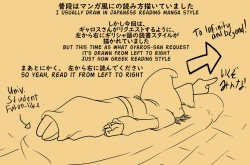 普段はマンガ風にの読み方描いていました
I USUALLY DRAW IN JAPANESE READING MANGA STYLE
しかし今回は、
ギャロスさんがリクエストするように、
左から右にギリシャ語の読書スタイルが
描かれていました
BUT THIS TIME AS WHAT GYAROS-SAN REQUEST
IT'S DRAWN FROM LEFT TO RIGHT
JUST HOW GREEK READING STYLE
まあとにかく、 左から右に読んでください
SO YEAH, READ IT FROM LEFT TO RIGHT
To Infinity
and beyond!
いくぞ
みんな!
Univ.
Student